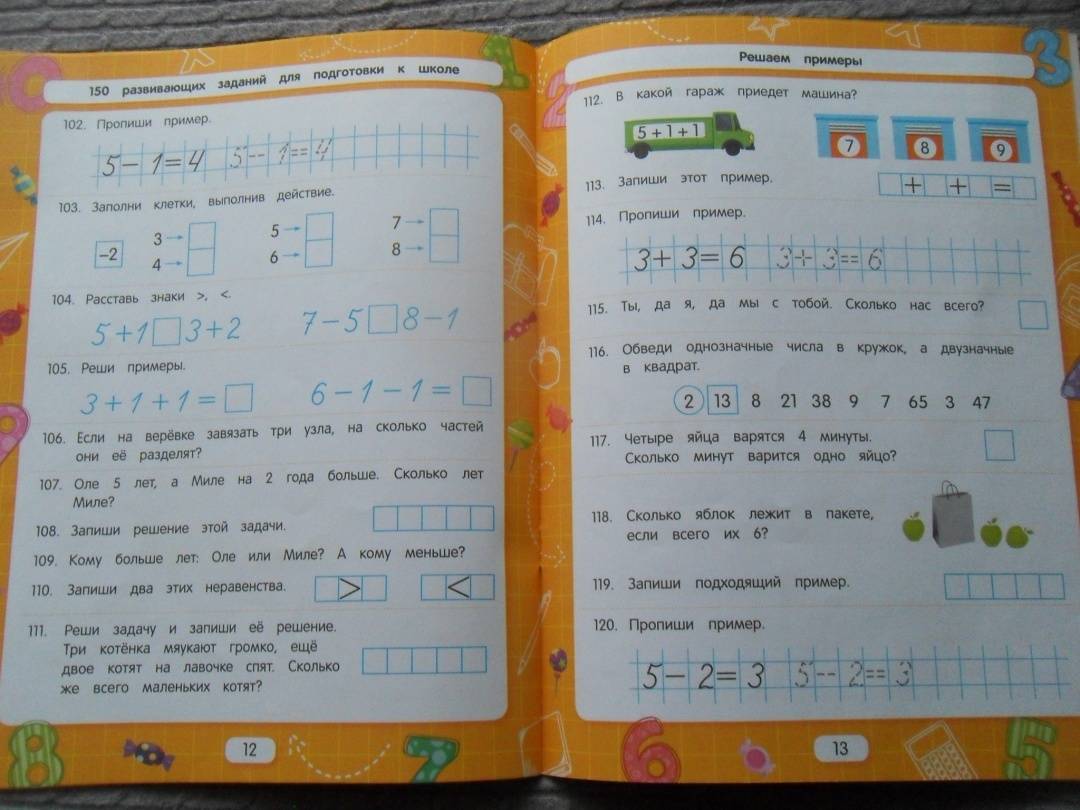 150 развивающих заданий для подготовки к школе
102. Пропиши пример.
5 − 1 = 4 5 − 1 = 4
103. Заполни клетки, выполнив действие.
−2
3 →
4 →
5 →
6 →
7 →
8 →
104. Расставь знаки >, <.
5 + 1 □ 3 + 2 7 − 5 □ 8 − 1
105. Реши примеры.
3 + 1 + 1 = □ 6 − 1 − 1 = □
106. Если на верёвке завязать три узла, на сколько частей
они её разделят?
107. Оле 5 лет, а Миле на 2 года больше. Сколько лет
Миле?
108. Запиши решение этой задачи.
109. Кому больше лет: Оле или Миле? А кому меньше?
110. Запиши два этих неравенства. > <
111. Реши задачу и запиши её решение.
Три котёнка мяукают громко, ещё
двое котят на лавочке спят. Сколько
же всего маленьких котят?
12
Решаем примеры
112. В какой гараж приедет машина?
5 + 1 + 1 7 8 9
113. Запиши этот пример. + + =
114. Пропиши пример.
3 + 3 = 6 3 + 3 = 6
115. Ты, да я, да мы с тобой. Сколько нас всего?
116. Обведи однозначные числа в кружок, а двузначные
в квадрат.
2 13 8 21 38 9 7 65 3 47
117. Четыре яйца варятся 4 минуты.
Сколько минут варится одно яйцо?
118. Сколько яблок лежит в пакете,
если всего их 6?
119. Запиши подходящий пример.
120. Пропиши пример.
5 − 2 = 3 5 − 2 = 3
13